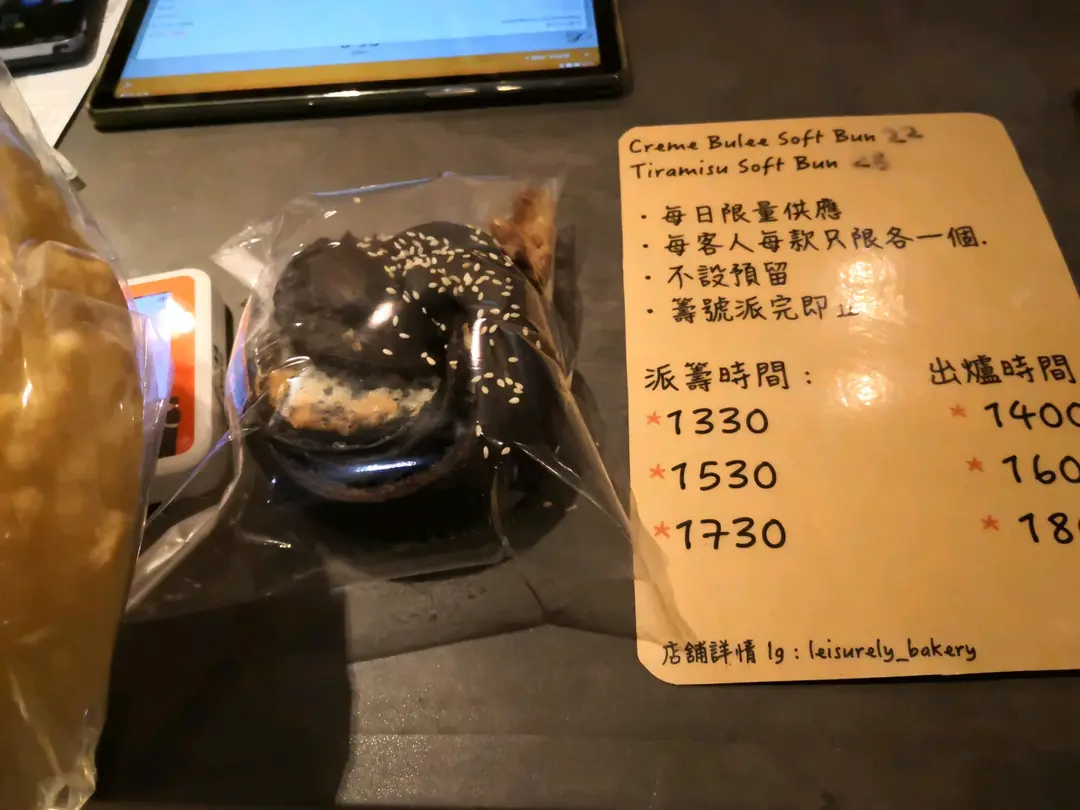 Creme Bulee Soft Bun 22
Tiramisu Soft Bun
· 每日限量供應
· 每客人每款只限各一個.
· 不設預留
· 籌號派完即止
派籌時間：
出爐時間
*1330
*1400
*1530
*160
*1730
*18
店舖詳情 Ig : leisurely_bakery